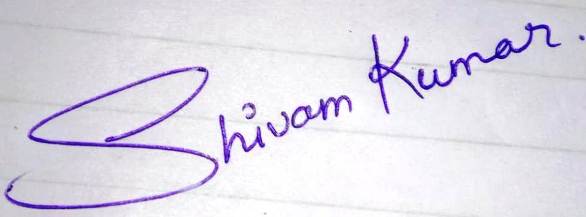 Shivam Kumar.